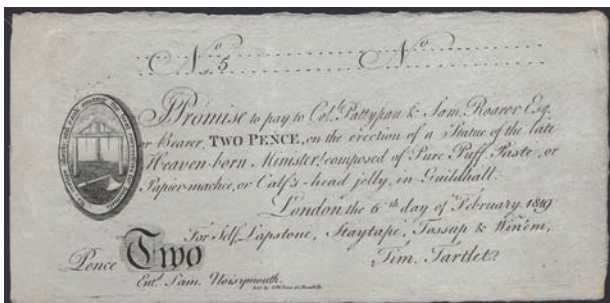 No. 5 No.
I Promise to pay to Coll. Pattypan & Sam. Roarer Esq.
or Bearer TWO PENCE, on the erection of a Statue of the late
Heaven-born Minister! composed of Pure Puff-Paste, or
Papier-machee, or Calf's-head jelly, in Guildhall.
London the 6th day of February 1819
For Self, Lapstone, Staytape, Tossup & Win'em,
Pence Two Tim. Tartlet
Entd. Sam. Noisymouth.